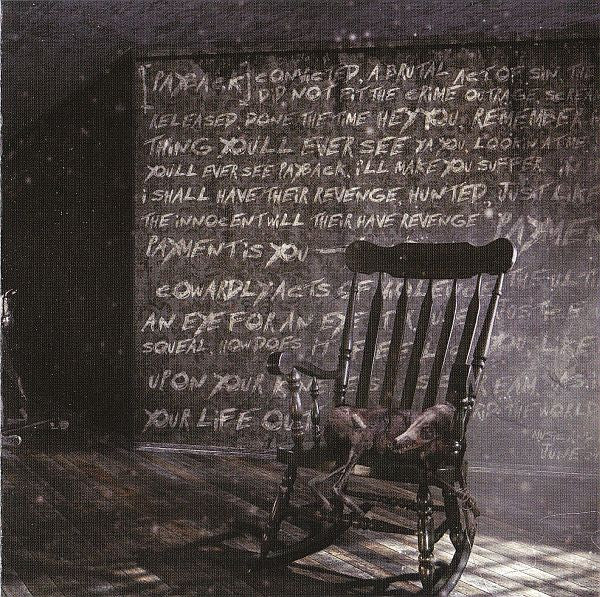 [PAYBACK] CONVICTED, A BRUTAL ACT OF SIN, THE
DID NOT FIT THE CRIME OUTRAGE, SCREA
RELEASED, DONE THE TIME HEY YOU, REMEMBER
THING YOULL EVER SEE YA YOU, LOOK IN AT ME,
YOULL EVER SEE PAYBACK, iLL MAKE YOU SUFFER, IN
i SHALL HAVE THEIR REVENGE, HUNTED, JUST LIKE
THE INNOCENT WILL THEIR HAVE REVENGE PAYMEN
PAYMENT iS YOU
COWARDLY ACTS OF
AN EYE FOR AN EYE
SQUEAL, HOW DOES IT FEEL YOU, LIKE
UPON YOUR SCREAM
YOUR LiFE OU THE WORLD